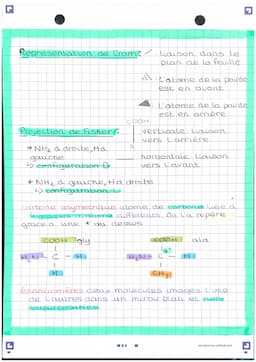 Représentation de Cram: / liaison dans le
plan de la feuille
l'atome de la pointe
est en avant
l'atome de la pointe
est en arrière
Projection de Fisher: COOH verticale liaison
vers l'arrière
* NH₂ à droite, H à
gauche horizontale liaison
↳ configuration D vers l'avant
* NH₂ à gauche, H à droite
↳ configuration L
Carbone asymétrique atome de carbone liée à
4 groupes d'atomes différents. On la repère
grâce à une * au dessus
COOH gly COOH ala
H₂N - C - H H₂N - C - H
H CH₃
Énantiomères deux molécules images l'une
de l'autres dans un miroir plan et